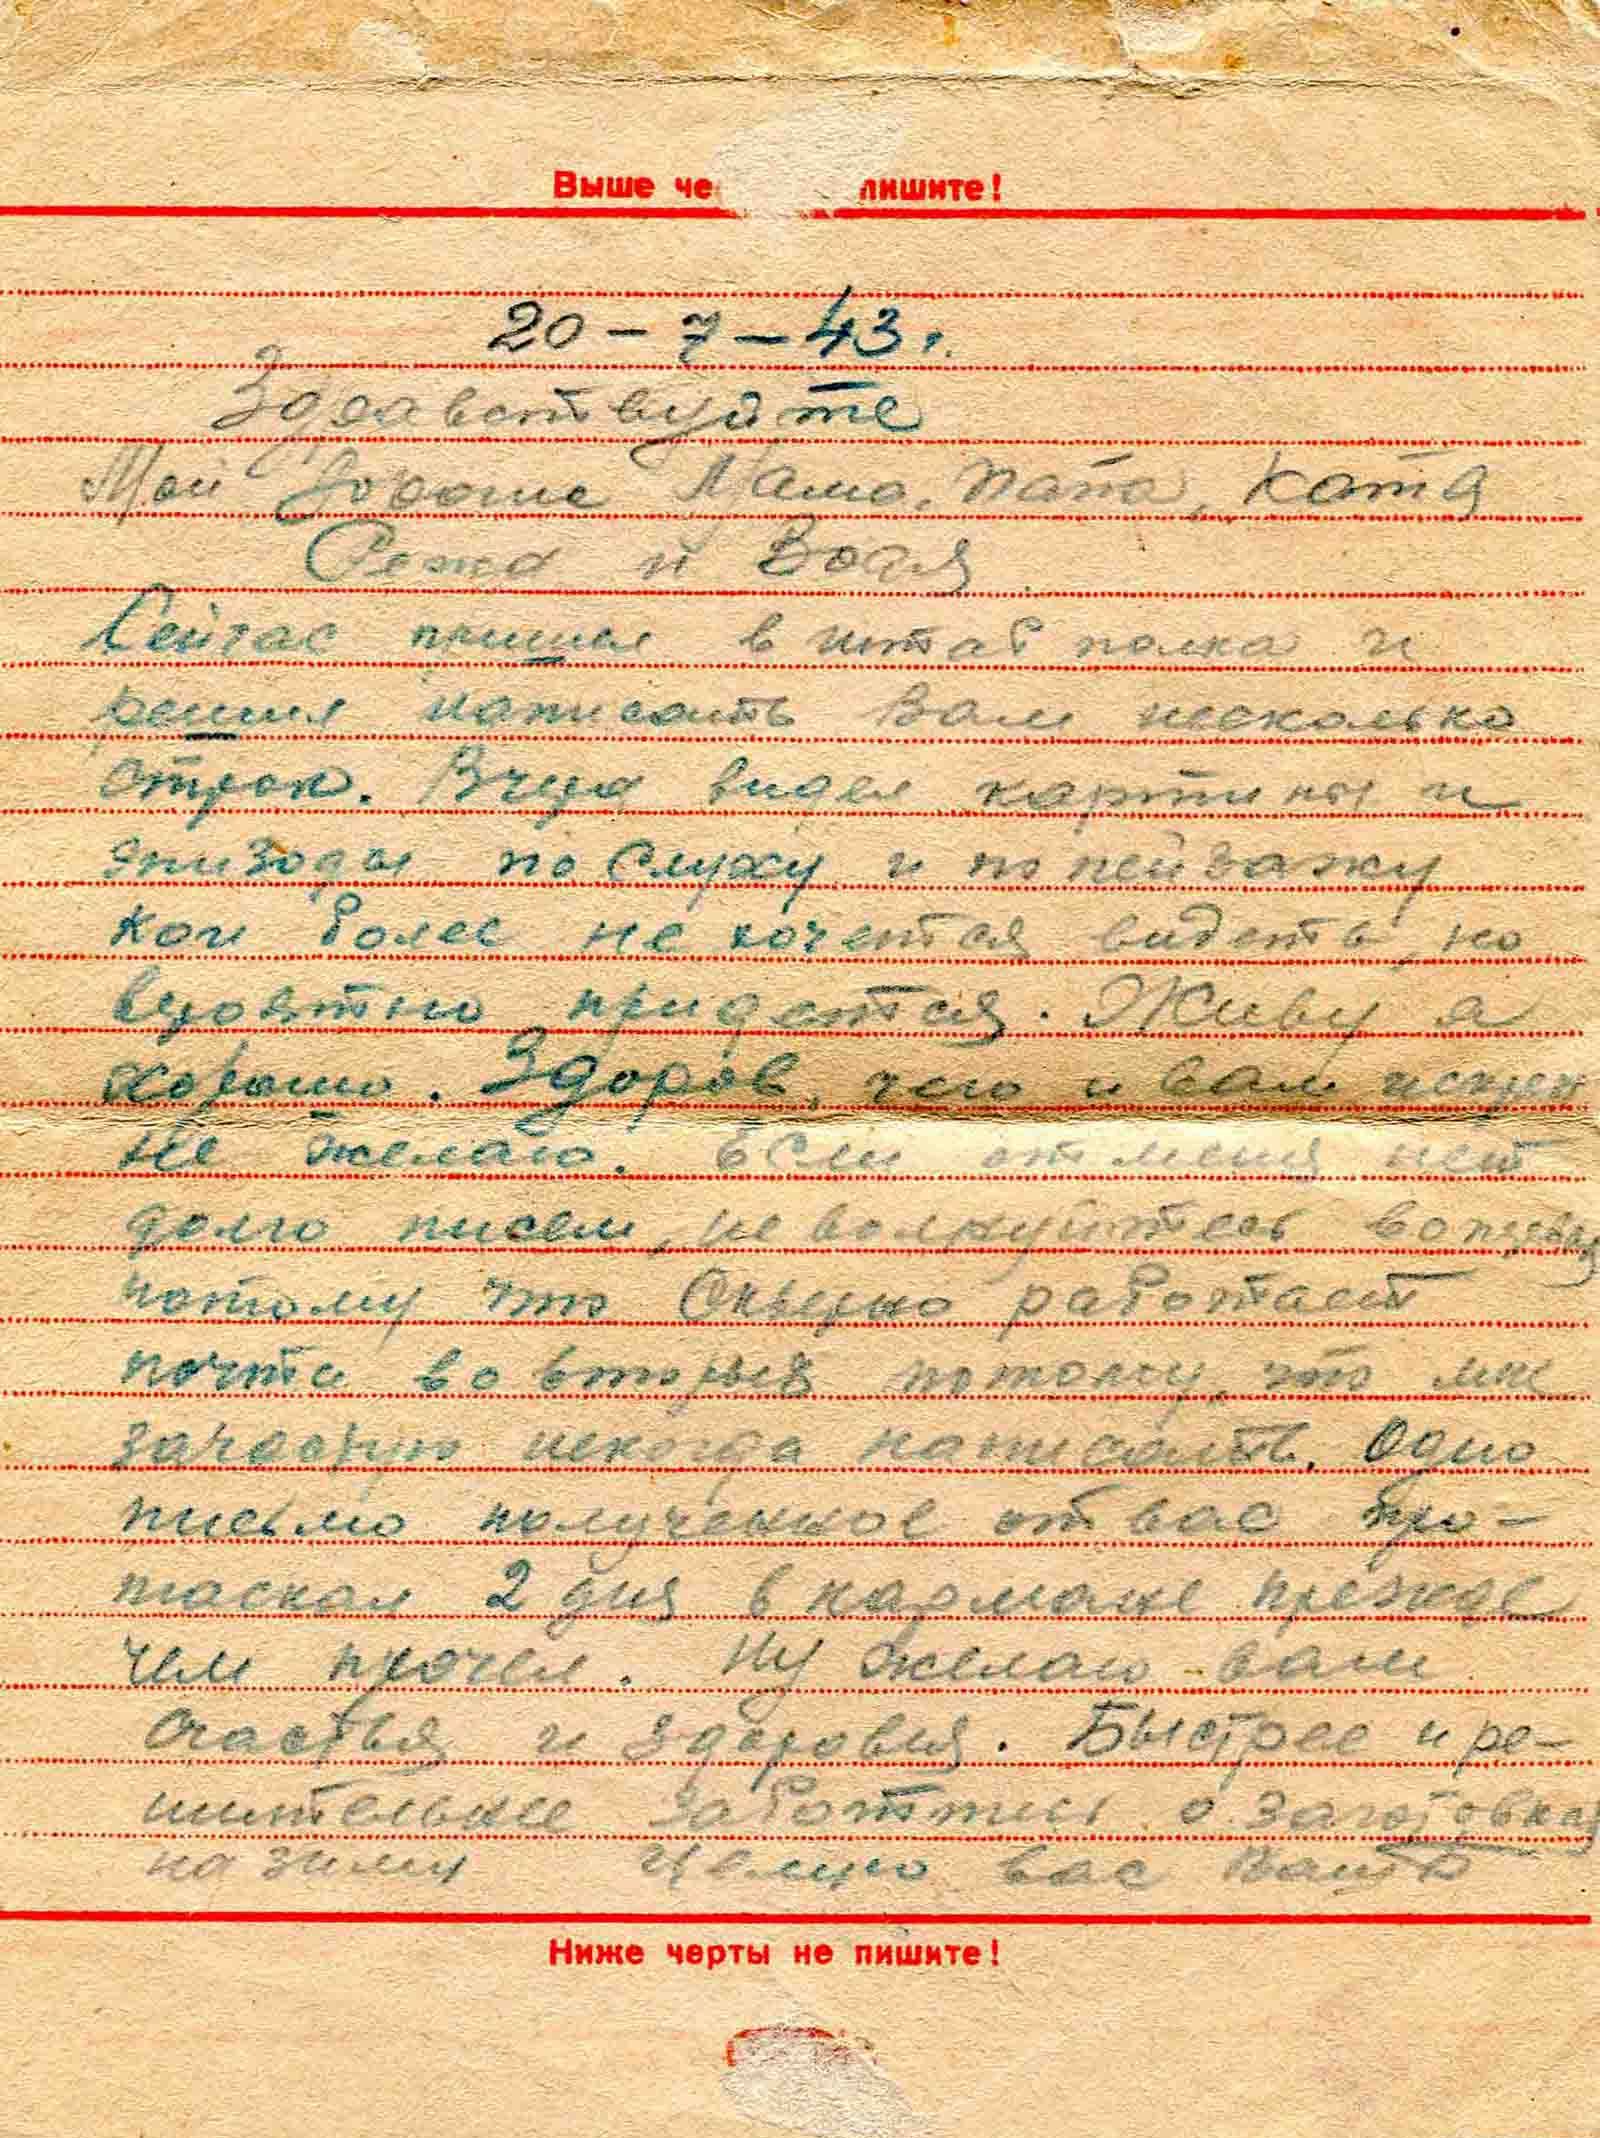 Выше че пишите!
20 – 7 – 43 г.
Здравствуйте
Мои Дорогие Мама, Папа, Катя
и Вова
Сейчас пришел в штаб полка и
решил написать вам несколько
строк. Вчера видел картины и
эпизоды по слуху и по пейзажу
кои более не хочется видеть, но
вероятно придется. Живу я
хорошо. Здоров, чего и вам искрен
не желаю. Если от меня нет
долго писем, не волнуйтесь во первых
потому что скверно работает
почта во вторых потому, что мне
зачастую некогда написать. Одно
письмо полученное от вас про–
таскал 2 дня в кармане прежде
чем прочел. Ну желаю вам
счастья и здоровия. Быстрее и ре–
шительнее заботтесь о заготовках
на зиму Целую вас
Ниже черты не пишите!